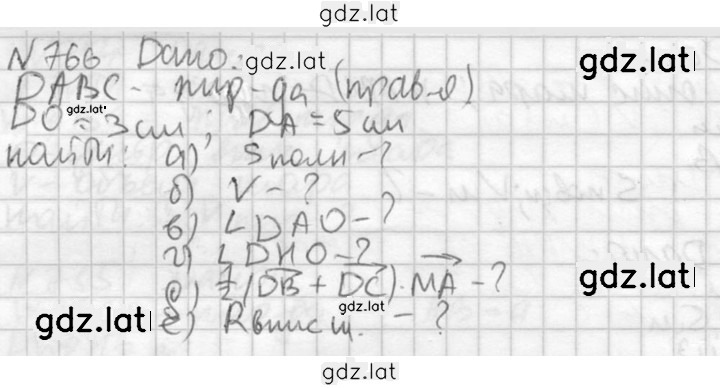 gdz.lat
N 766 Дано: gdz.lat gdz.lat
DABC - пир-да (прав-я)
gdz.lat
DO = 3 см; DA = 5 см
Найти: а) Sполн - ?
б) V - ?
в) ∠DAO - ?
г) ∠DHO - ?
gdz.lat
д) ½(DB + DC)·MA - ?
gdz.lat
gdz.lat е) Rвпис ш. - ?
gdz.lat